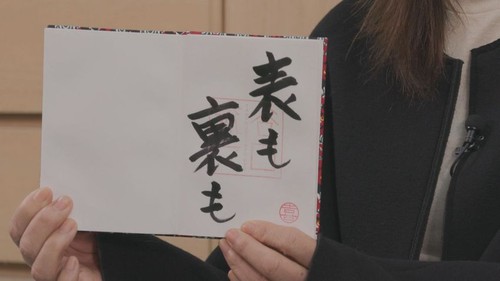 表も
裏も